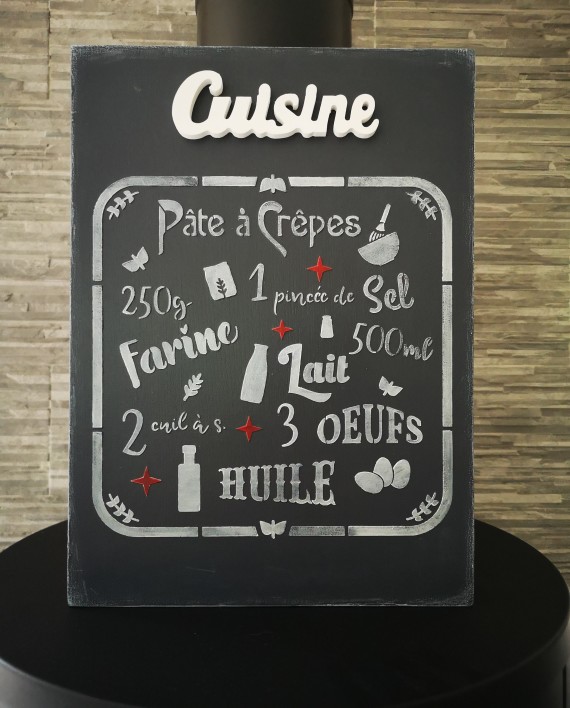 Cuisine
Pâte à Crêpes
250g
Farine
1 pincée de Sel
500ml
Lait
2 cuil à s.
HUILE
3 OEUFS